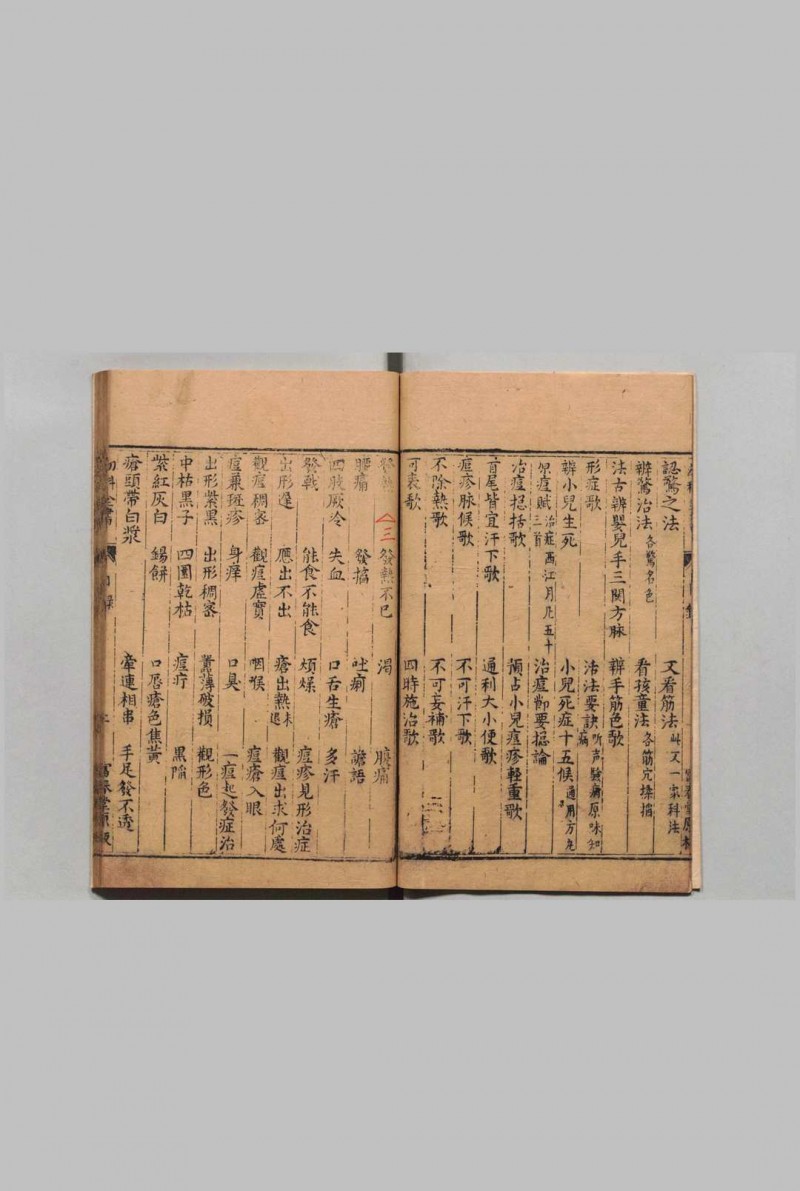 認驚之法　又看筋法 此又一家科法
辨驚治法 各驚名色　看孩童法 各筋穴
法古辨嬰兒手三關方脉　辨手筋色歌
形症歌　治法要訣 听声
辨小兒生死　小兒死症十五候
痘賦 治症西江月凡五十三首　治痘節要總論
治痘総括歌　預占小兒痘疹軽重歌
首尾皆宜汗下歌　通利大小便歌
痘疹脉候歌　不可汗下歌
不除熱歌　不可妄補歌
可表歌　四時施治歌
三　發熱不已　渴　腹痛
腰痛　發搐　吐痢　譫語
四肢厥冷　失血　口舌生瘡　多汗
發戰　能食不能食　煩燥　痘疹見形治症
出形遲　應出不出　瘡出熱未退　觀痘出求何處
觀痘稠密　觀痘虛實　咽喉　痘瘡入眼
痘兼斑疹　身痒　口臭　一痘起發症治
出形紫黑　出形稠密　薄破損　觀形色
中枯黑子　四圍乾枯　痘疔　黑陷
紫紅灰白　錫餅　口唇瘡色焦黃
瘡頭帶白漿　牽連相串　手足發不透
幼科全書　目錄